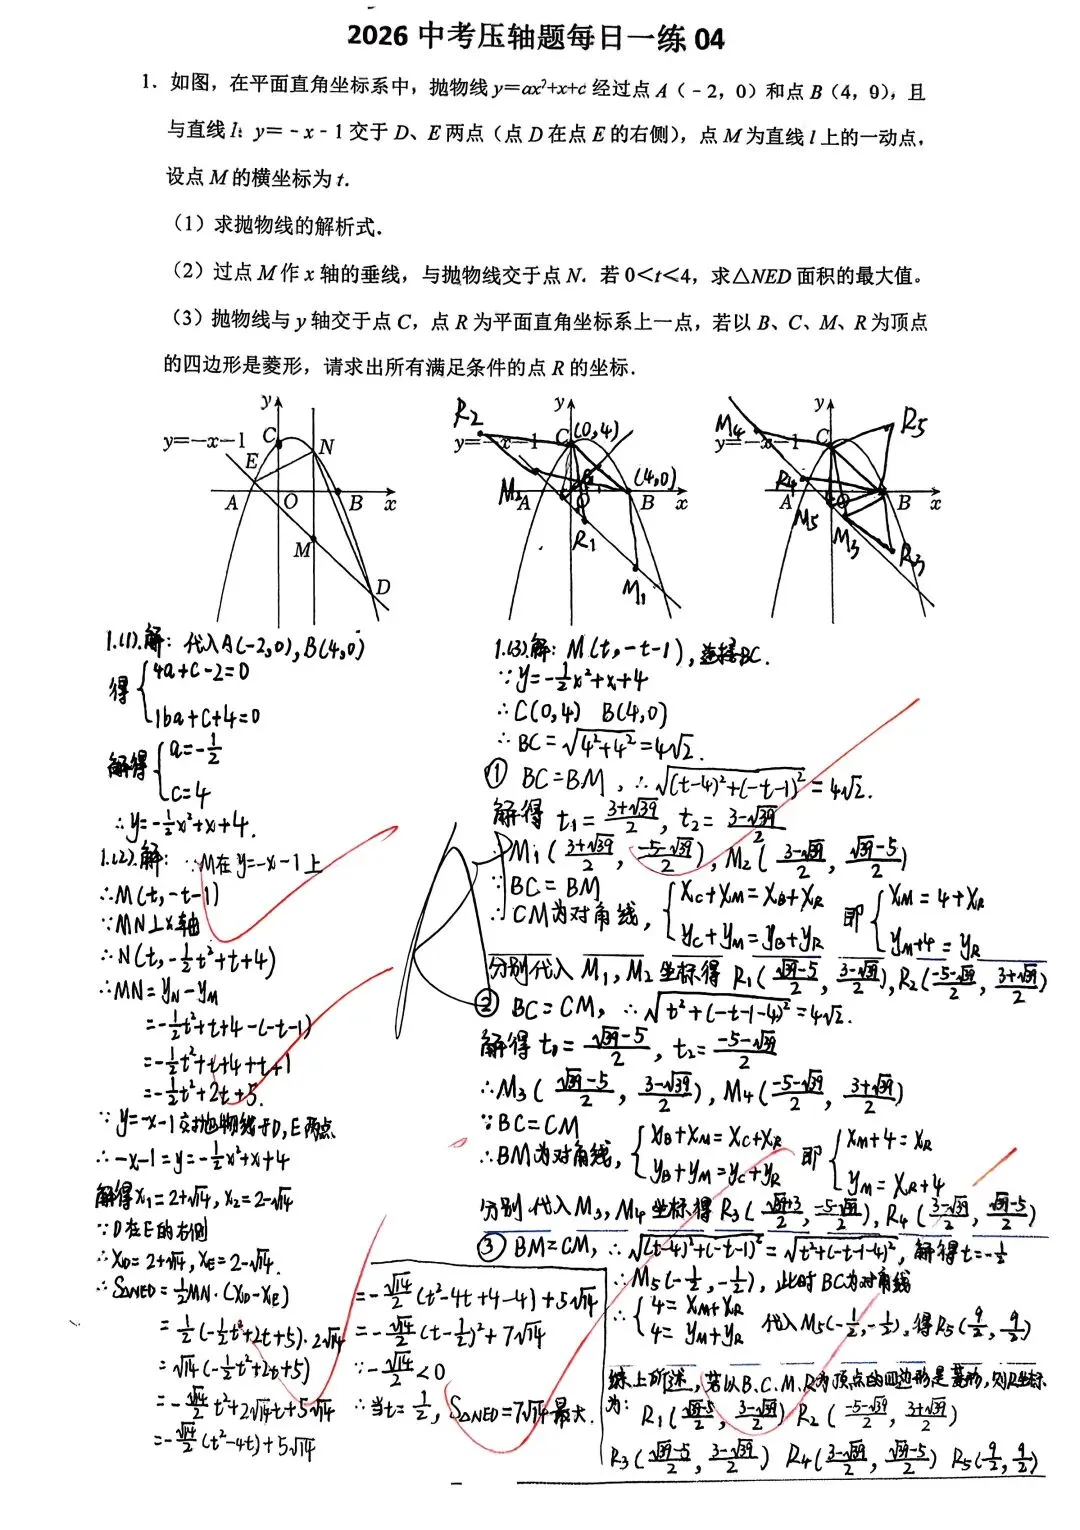 2026 中考压轴题每日一练 04
1. 如图，在平面直角坐标系中，抛物线 y=ax²+x+c 经过点 A（-2，0）和点 B（4，0），且
与直线 l：y=-x-1 交于 D、E 两点（点 D 在点 E 的右侧），点 M 为直线 l 上的一动点，
设点 M 的横坐标为 t.
（1）求抛物线的解析式.
（2）过点 M 作 x 轴的垂线，与抛物线交于点 N. 若 0<t<4，求△NED 面积的最大值。
（3）抛物线与 y 轴交于点 C，点 R 为平面直角坐标系上一点，若以 B、C、M、R 为顶点
的四边形是菱形，请求出所有满足条件的点 R 的坐标.
y=-x-1 y C E N A O B x M D
R2 y y=-x-1 C (0,4) (4,0) A B x R1 M1
M4 y y=-x-1 C R5 R4 A B x M5 M3 R3
1.(1).解：代入A(-2,0),B(4,0)
得 {4a+c-2=0
16a+c+4=0
解得 {a=-1/2
c=4
∴y=-1/2x²+x+4.
1.(2).解：∵M在y=-x-1上
∴M(t,-t-1)
∵MN⊥x轴
∴N(t,-1/2t²+t+4)
∴MN=yN-yM
=-1/2t²+t+4-(-t-1)
=-1/2t²+t+4+t+1
=-1/2t²+2t+5.
∵y=-x-1交抛物线于D,E两点
∴-x-1=y=-1/2x²+x+4
解得x₁=2+√14, x₂=2-√14
∵D在E的右侧
∴xD=2+√14, xE=2-√14.
∴S△NED=1/2MN·(xD-xE)
=1/2(-1/2t²+2t+5)·2√14
=√14(-1/2t²+2t+5)
=-√14/2t²+2√14t+5√14
=-√14/2(t²-4t)+5√14
=-√14/2(t²-4t+4-4)+5√14
=-√14/2(t-1/2)²+7√14
∵-√14/2<0
∴当t=1/2, S△NED=7√14最大.
1.(3).解：M(t,-t-1),连接BC.
∵y=-1/2x²+x+4
∴C(0,4) B(4,0)
∴BC=√(4²+4²)=4√2.
① BC=BM, ∴√((t-4)²+(-t-1)²)=4√2.
解得 t₁=(3+√39)/2, t₂=(3-√39)/2
∴M₁((3+√39)/2, (-5-√39)/2), M₂((3-√39)/2, (√39-5)/2)
∵BC=BM
∴CM为对角线, {xC+xM=xB+xR 即 {xM=4+xR
yC+yM=yB+yR yM+4=yR
分别代入M₁,M₂坐标得R₁((√39-5)/2, (3-√39)/2),R₂((-5-√39)/2, (3+√39)/2)
② BC=CM, ∴√(t²+(-t-1-4)²)=4√2.
解得 t₁=(√39-5)/2, t₂=(-5-√39)/2
∴M₃((√39-5)/2, (3-√39)/2), M₄((-5-√39)/2, (3+√39)/2)
∵BC=CM
∴BM为对角线, {xB+xM=xC+xR 即 {xM+4=xR
yB+yM=yC+yR yM=xR+4
分别代入M₃,M₄坐标得R₃((√39+3)/2, (-5-√39)/2), R₄((3-√39)/2, (√39-5)/2)
③ BM=CM, ∴√((t-4)²+(-t-1)²)=√(t²+(-t-1-4)²), 解得t=-1/2
∴M₅(-1/2,-1/2), 此时BC为对角线
∴{4=xM+xR
4=yM+yR 代入M₅(-1/2,-1/2),得R₅(9/2,9/2)
综上所述,若以B.C.M.R为顶点的四边形是菱形,则R坐标
为: R₁((√39-5)/2, (3-√39)/2) R₂((-5-√39)/2, (3+√39)/2)
R₃((√39-5)/2, (3-√39)/2) R₄((3-√39)/2, (√39-5)/2) R₅(9/2,9/2)